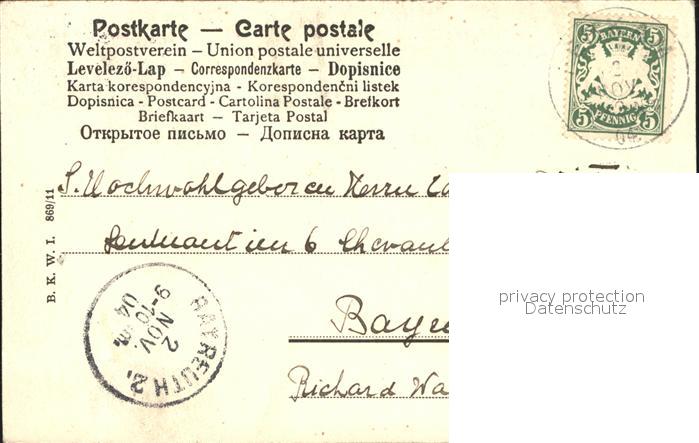 Postkarte — Carte postale
Weltpostverein – Union postale universelle
Levelező-Lap – Correspondenzkarte – Dopisnice
Karta korespondencyjna - Korespondenčni listek
Dopisnica - Postcard - Cartolina Postale - Brefkort
Briefkaart — Tarjeta Postal
Открытое письмо — Дописна карта
5 BAYERN 5
5 PFENNIG 5
NOV
04
S. Hochwohlgeboren Herrn
im 6 Chevaul
Baye
Richard Wa
B. K. W. I. 869/11
BAYREUTH 2.
2
NOV.
9-10
04
privacy protection
Datenschutz